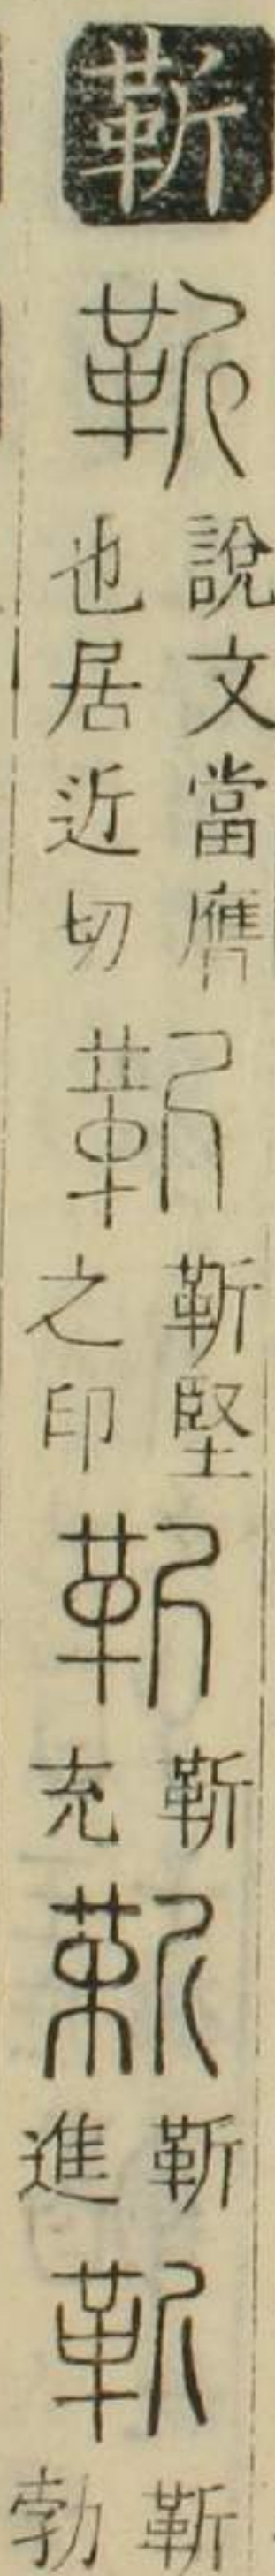 靳
靳
說文當膺
也居近切
靳
靳堅
之印
靳
靳
充
靳
靳
進
靳
靳
勃